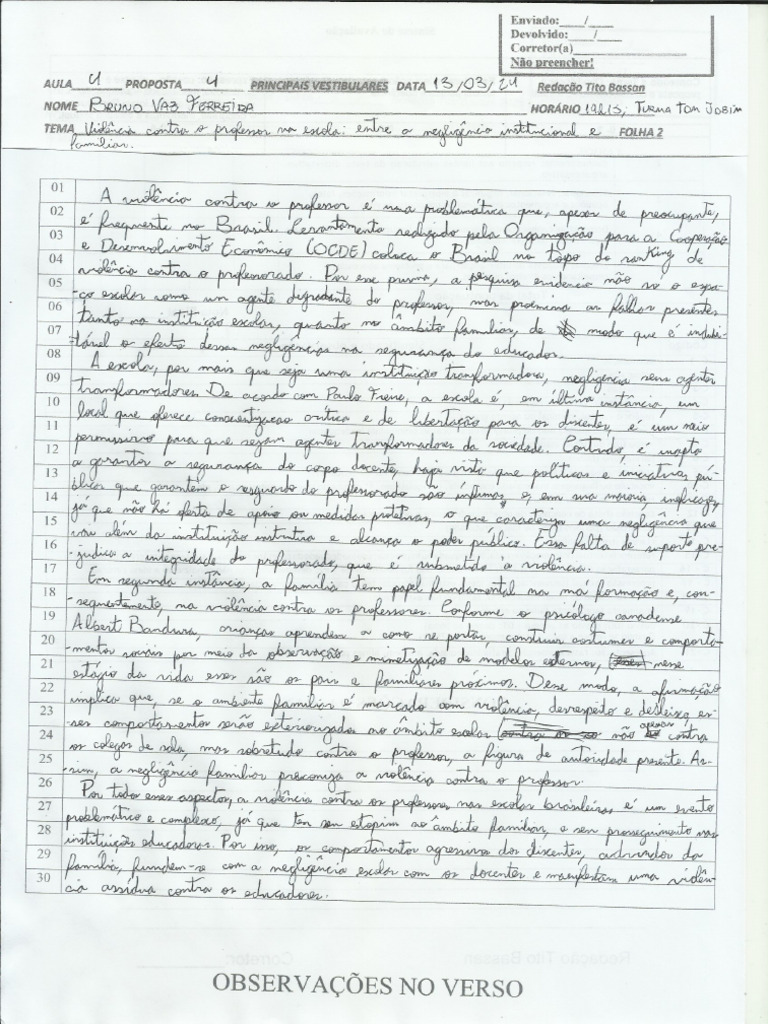 Enviado:____/____
Devolvido:____/____
Corretor(a)____________________
Não preencher!
AULA 4 PROPOSTA 4 PRINCIPAIS VESTIBULARES DATA 13/03/24 Redação Tito Bassan
NOME BRUNO VAZ FERREIRA HORÁRIO 19:15, TURMA TOM JOBIM
TEMA Violência contra o professor na escola: entre a negligência institucional e FOLHA 2
familiar.
01 A violência contra o professor é uma problemática que, apesar de preocupante,
02 é frequente no Brasil. Levantamento realizado pela Organização para a Cooperação
03 e Desenvolvimento Econômico (OCDE) coloca o Brasil no topo do ranking de
04 violência contra o professorado. Por esse prisma, a pesquisa evidencia não só o espa-
05 ço escolar como um agente degradante do professor, mas proemina as falhas presentes
06 tanto na instituição escolar, quanto no âmbito familiar, de modo que é indubi-
07 tável o efeito dessas negligências na segurança do educador.
08 A escola, por mais que seja uma instituição transformadora, negligencia seus agentes
09 transformadores. De acordo com Paulo Freire, a escola é, em última instância, um
10 local que oferece conscientização crítica e de libertação para os discentes, é um meio
11 permissivo para que sejam agentes transformadores da sociedade. Contudo, é inapta
12 a garantir a segurança do corpo docente, haja visto que políticas e iniciativas pú-
13 blicas que garantem o resguardo do professorado são ínfimas, e, em sua maioria ineficazes,
14 já que não há oferta de apoio ou medidas protetivas, o que caracteriza uma negligência que
15 vai além da instituição instrutiva e alcança o poder público. Essa falta de suporte pre-
16 judica a integridade do professorado, que é submetido à violência.
17 Em segunda instância, a família tem papel fundamental na má formação e, con-
18 sequentemente, na violência contra os professores. Conforme o psicólogo canadense
19 Albert Bandura, crianças aprendem a como se portar, construir costumes e comporta-
20 mentos sociais por meio da observação e mimetização de modelos externos, nesse
21 estágio da vida esses são os pais e familiares próximos. Desse modo, a afirmação
22 implica que, se o ambiente familiar é marcado com violência, desrespeito e desleixo, es-
23 ses comportamentos serão exteriorizados no âmbito escolar não apenas contra
24 os colegas de sala, mas sobretudo contra o professor, a figura de autoridade presente. As-
25 sim, a negligência familiar preconiza a violência contra o professor.
26 Por todos esses aspectos, a violência contra os professores, nas escolas brasileiras, é um evento
27 problemático e complexo, já que tem seu estopim no âmbito familiar, e seu prosseguimento nas
28 instituições educadoras. Por isso, os comportamentos agressivos dos discentes, advindos da
29 família, fundem-se com a negligência escolar com os docentes e manifestam uma violên-
30 cia assídua contra os educadores.
OBSERVAÇÕES NO VERSO